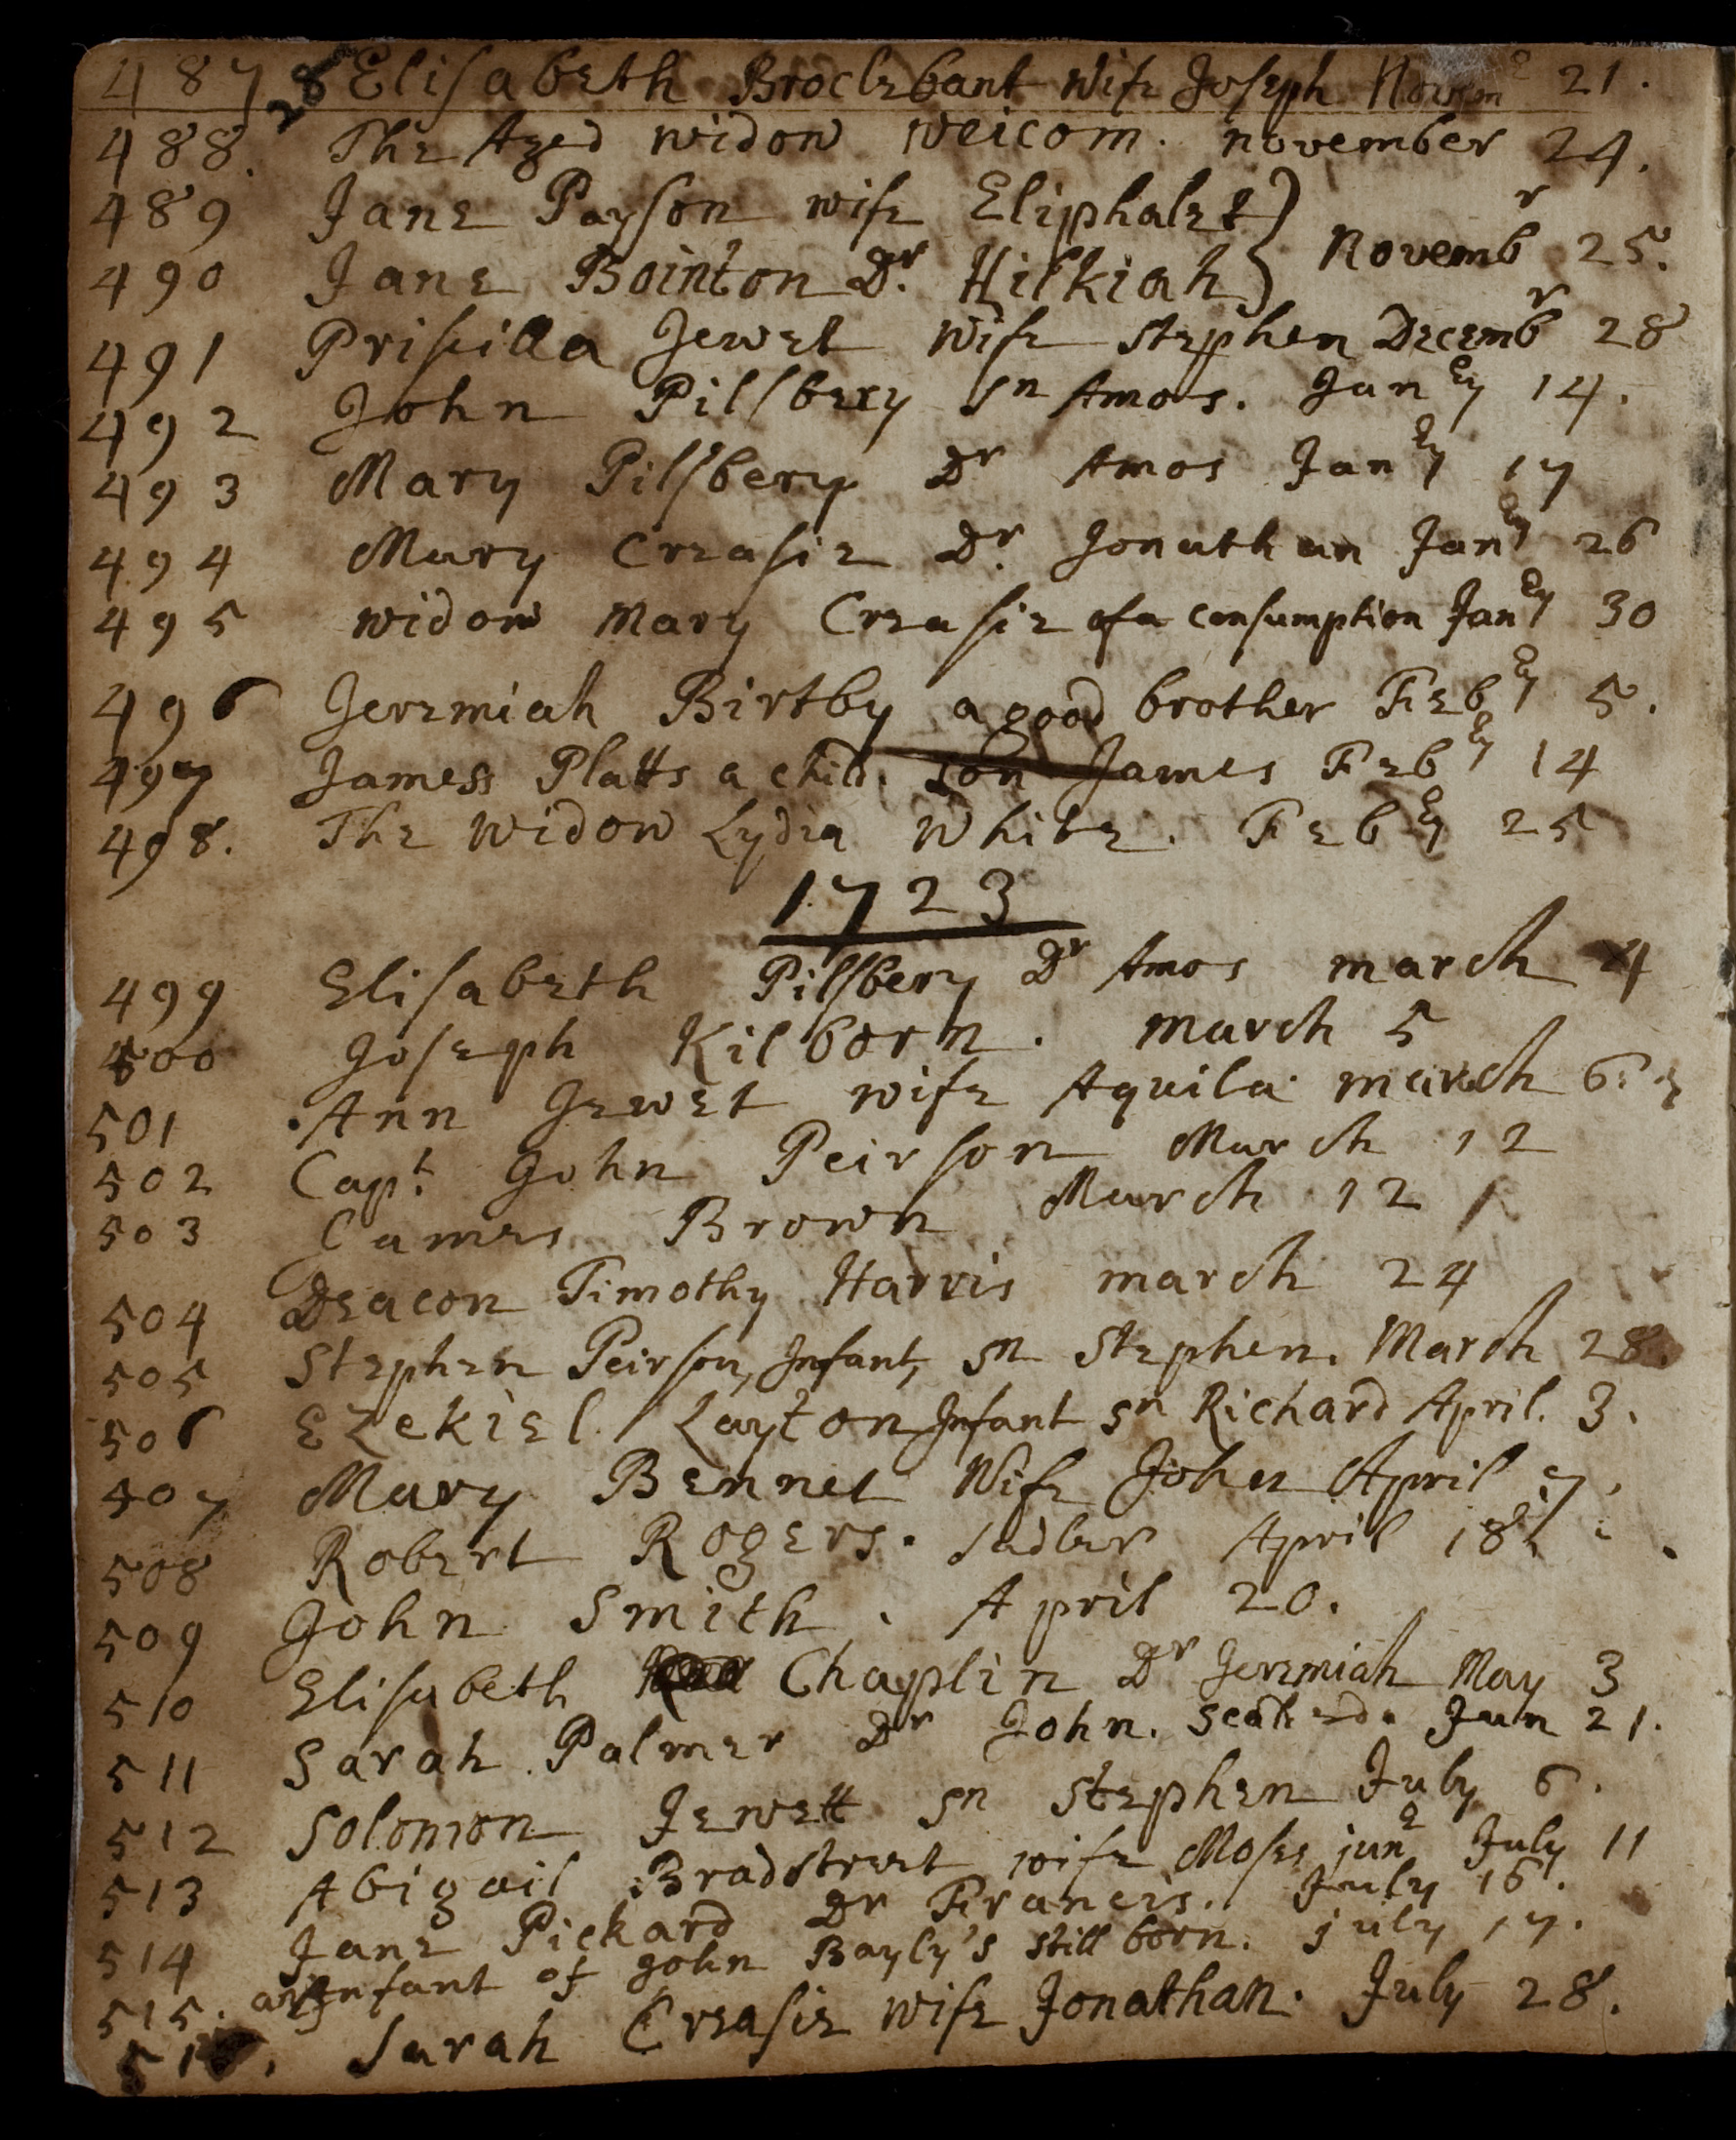 487 28 Elisabeth Brocklebank Wife Joseph Novem 21.
488. The Aged widow Welcom. november 24.
489 Jane Payson wife Eliphalet
Novembr 25.
490 Jane Bointon Dr. Hilkiah
491 Priscilla Jewet Wife Stephen Decembr 28
492 John Pilsbery Sn Amos. Janry 14.
493 Mary Pilsbery Dr Amos Janry 17
494 Mary Creasie Dr. Jonathan Janry 26
495 widow Mary Creasie of a consumption Janry 30
496 Jeremiah Birtby a good brother Febry 5.
497 James Platts a child. son James Febry 14
498. The widow Lydia White. Febry 25
1723
499 Elisabeth Pilsbery Dr Amos march 4
500 Joseph Kilborn. march 5
501 Ann Jewet wife Aquila march 6.
502 Capt. John Peirson March 12
503 James Brown March 12
504 Deacon Timothy Harris march 24
505 Stephen Peirson, Infant, Sn Stephen. March 28.
506 Ezekiel Layton Infant sn Richard April. 3.
407 Mary Bennet Wife John April 7.
508 Robert Rogers. Sadler April 18
509 John Smith. April 20.
510 Elisabeth Chaplin Dr Jeremiah May 3
511 Sarah Palmer Dr John. Scalded. Jun 21.
512 Solomon Jewett Sn Stephen July 6.
513 Abigail Bradstreet wife Moses junr July 11
514 Jane Pickard Dr Francis. July 16.
515. an Infant of John Bayly's still born. july 17.
516. Sarah Creasie wife Jonathan. July 28.